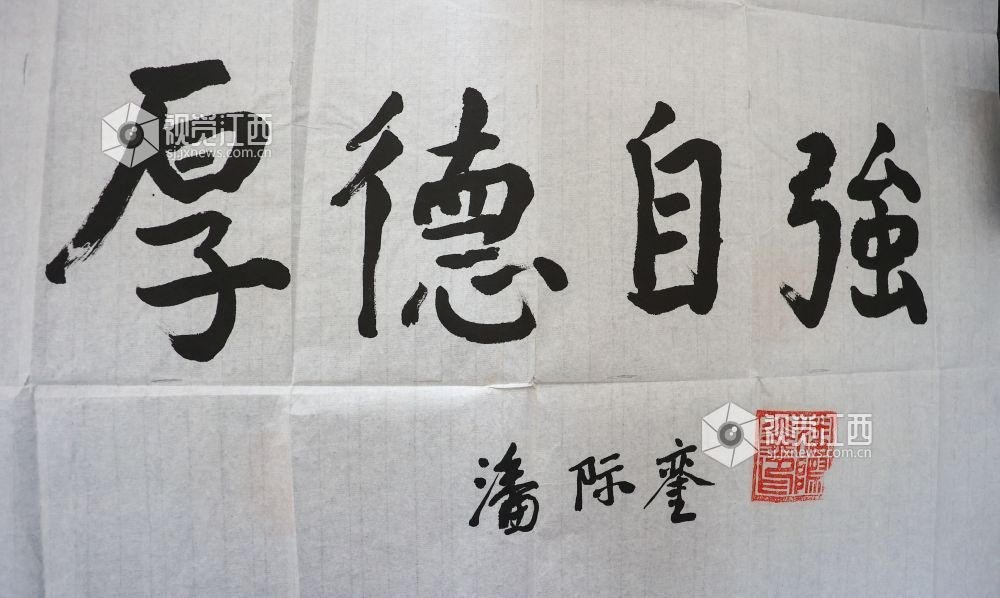 厚德自強
潘际銮
视觉江西
sjjxnews.com.cn
视觉江西
sjjxnews.com.cn